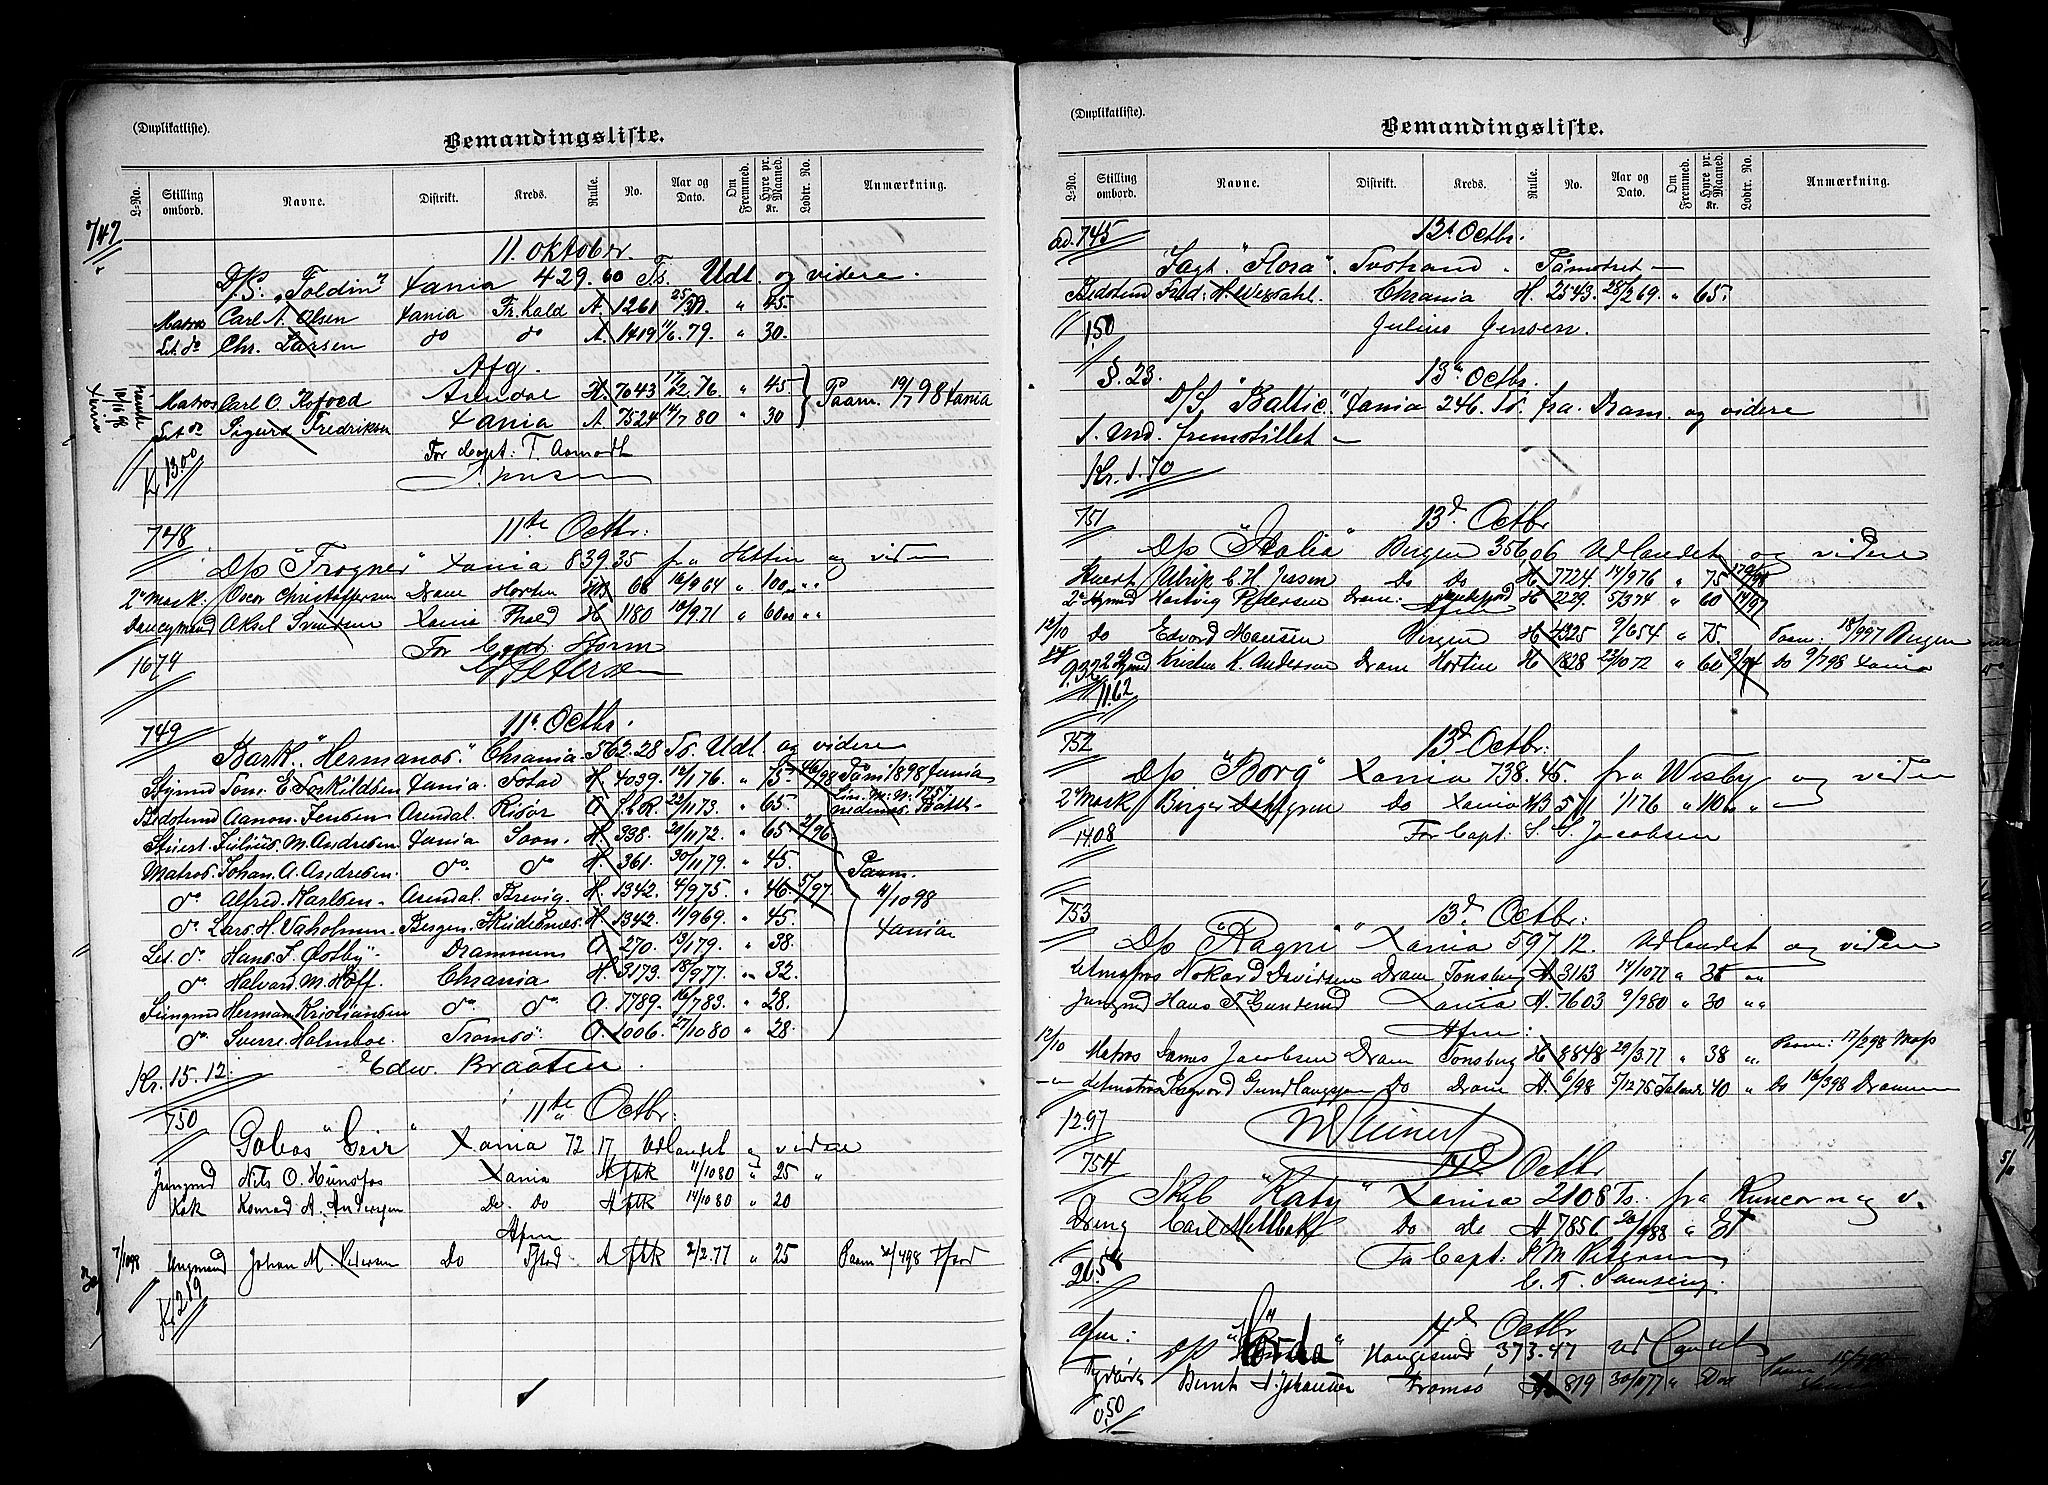 (Duplikatliste).
Bemandingsliste.
L-No. Stilling ombord. Navne. Distrikt. Kreds. Rulle. No. Aar og Dato. Om Fremmed. Hyre pr. Maaned. Kr. Lodtr. No. Anmærkning.
747
11. Oktober.
D/S. "Foldin" Xania 429.60 Ts. Udt. og videre.
Matros Carl A. Olsen Xania Fr.hald A. 1261 " 45.
Let. do Chr. Larsen do do A. 1419 11/6.79. " 30.
Afg.
Matros Carl O. Kofoed Arendal H. 7043 17/12.76. " 45. Paam. 19/7 98 Xania
Let. do Sigurd Fredriksen Xania A 7524 14/7 80 " 30
For Capt: T. Aamodt
Kr 13.00
748
11te Octbr:
D/s "Trogner" Xania 839.35 fra Hettin og viden
2n Mask. Oscar Christoffersen Dram Horten 68 16/9 64 " 100 " "
Donkeymand Aksel Svendsen Xania Fhald H 1180 10/9 71 " 60 " "
For Capt. Horm
1679
749
11te Octbr.
Bark. "Hermanos" Chrania 562.28 Ts. Udt. og videre
Styrmd Tom. E. Torkildsen Xania. H. 4039. 12/1 76. " 75
Bedstemd Aanon. Jensen Arendal. Risör A. 22/1 73. " 65.
Stuert. Julius. M. Andresen Xania Soon. H. 338. 20/11 72. " 65. 2/96
Matros. Johan. A. Andresen. do. do. H. 361. 30/11 79. " 45. Paam.
do. Alfred. Karlsen. Arendal. Brevig. H. 1342. 4/9 75. " 46. 5/97 4/10 98
do. Lars. H. Vaholmen. Bergen. Skudesnes. H. 1343. 11/9 69. " 45 Xania
Let. do. Hans. J. Østby. Drammen A. 270. 13/1 79. " 38.
do. Halvard. M. Hoff. Chrania H. 3173. 18/9 77. " 32.
Jungmd Herman Kristiansen do. do. A. 1789. 16/7 83. " 28.
do. Sverre. Holmboe. Tromsö. A. 1006. 27/10 80 " 28.
Kr. 15.12. Edw. Braaten.
750
11te Octbr:
Galeas "Geir" Xania 72 17 Udlandet og videre
Jungmd Nils O. Hunsfos Xania A ftk 11/10 80 " 25 "
Kok Konrad A. Andersen Do. Do A ftk 14/10 80 " 20
Afm
7/10 98 Ungmand Johan M. Pedersen Do A ftk 2/2.77 " 25
Kr 2.89
(Duplikatliste).
Bemandingsliste.
L-No. Stilling ombord. Navne. Distrikt. Kreds. Rulle. No. Aar og Dato. Om Fremmed. Hyre pr. Maaned. Kr. Lodtr. No. Anmærkning.
ad. 745
13de Octbr.
Jagt. "Flora". Tvestrand. Påmstret —
Bedstemd Fred: H. Wesdahl. Chrania H. 2543. 25/2 69. " 65.
1,50 Julius Jensen.
§. 23. 13de Octbr.
D/S, "Baltic" Xania 246. Ts. fra. Dram. og videre
1. Md. fremstillet —
Kr. 1.70
751 13d. Octbr
D/s "Italia" Bergen 356,06 Udlandet og videre
Stuert Ulrik C. H. Jessen Do Do H 7724. 14/9 76 " 75
2n Stymd Hartvig Pedersen Dram. H 2229. 5/3 74 " 60
12/10 Do Edvard Monsen Bergen H 4325 9/6 54 " 75. Paam: 18/9 97 Bergen
2 Stymd Kristen K. Andersen Dram Horten H 1828 23/10 72 " 60 3/94 Do 9/7 98 Xania
11.62
752 13d Octbr:
D/s "Borg" Xania 738.45. fra Wisby og viden
2n Mask Birger Do Xania 571 1/1 76 "
14.08 For Capt: S. G. Jacobsen
753 13d. Octbr:
D/s "Ragni" Xania 597.12. Udlandet og viden
Letmatros Hokard Davidsen Dram Tonsberg A. 3163 14/10 77 " 35 "
Jungmd Hans T Gundersmd Xania A. 7603 9/9 80 " 30 " "
Afm:
12/10 Matros James Jacobsen Dram Tonsberg H 8848 29/3.77 " 38 " Paam: 17/2 98 Moss
Letmatros Gundlaugssen Do Dram A. 6/98 5/12 75 Island 40 " Do 16/3 98 Drammen
12.97
754 14d. Octbr
Skib "Katy" Xania 2108 Ts. fra Runcorn og v.
Dreng Carl Mellbak Do do A 7856 20/9 88 " Et
20.58 For Capt: P. M. Petersen
C. T. Samsing.
Afm: 14d Octbr
D/s "Hörda" Haugesund 373.47 Udlandet
Fyrböder Bernt A. Johansen Tromsö A. 819 30/10 77 "
0,50